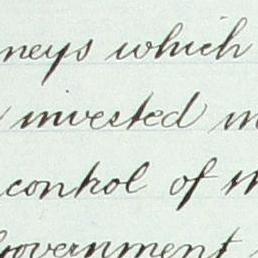 neys which
invested
control of
Government